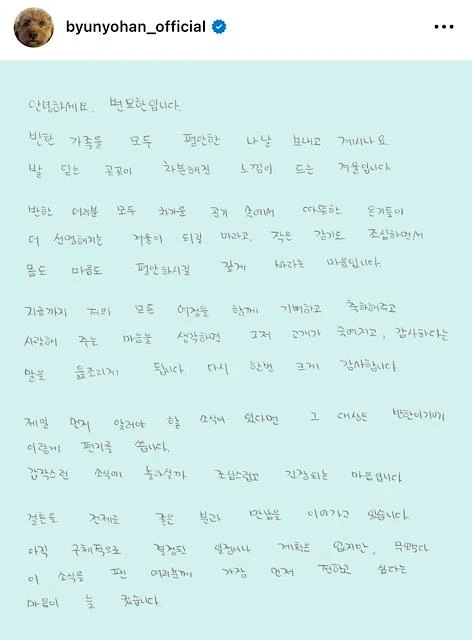 byunyohan_official
안녕하세요. 변요한입니다.
반한 가족들 모두 평안한 나날 보내고 계시나요.
발 딛는 곳곳이 차분해진 느낌이 드는 겨울입니다.
반한 여러분 모두 차가운 공기 속에서 따뜻한 온기들이
더 선명해지는 겨울이 되길 바라고, 작은 감기도 조심하면서
몸도 마음도 평안하시길 깊게 바라는 마음입니다.
지금까지 저의 모든 여정을 함께 기뻐하고 축하해주고
사랑해 주는 마음을 생각하면 그저 고개가 숙여지고, 감사하다는
말을 읊조리게 됩니다. 다시 한번 크게 감사합니다.
제일 먼저 알려야 할 소식이 있다면 그 대상은 반한이기에
이렇게 편지를 씁니다.
갑작스런 소식에 놀라실까 조심스럽고 긴장되는 마음입니다.
결혼을 전제로 좋은 분과 만남을 이어가고 있습니다.
아직 구체적으로 결정된 일정이나 계획은 없지만, 무엇보다
이 소식을 팬 여러분께 가장 먼저 전하고 싶다는
마음이 늘 컸습니다.